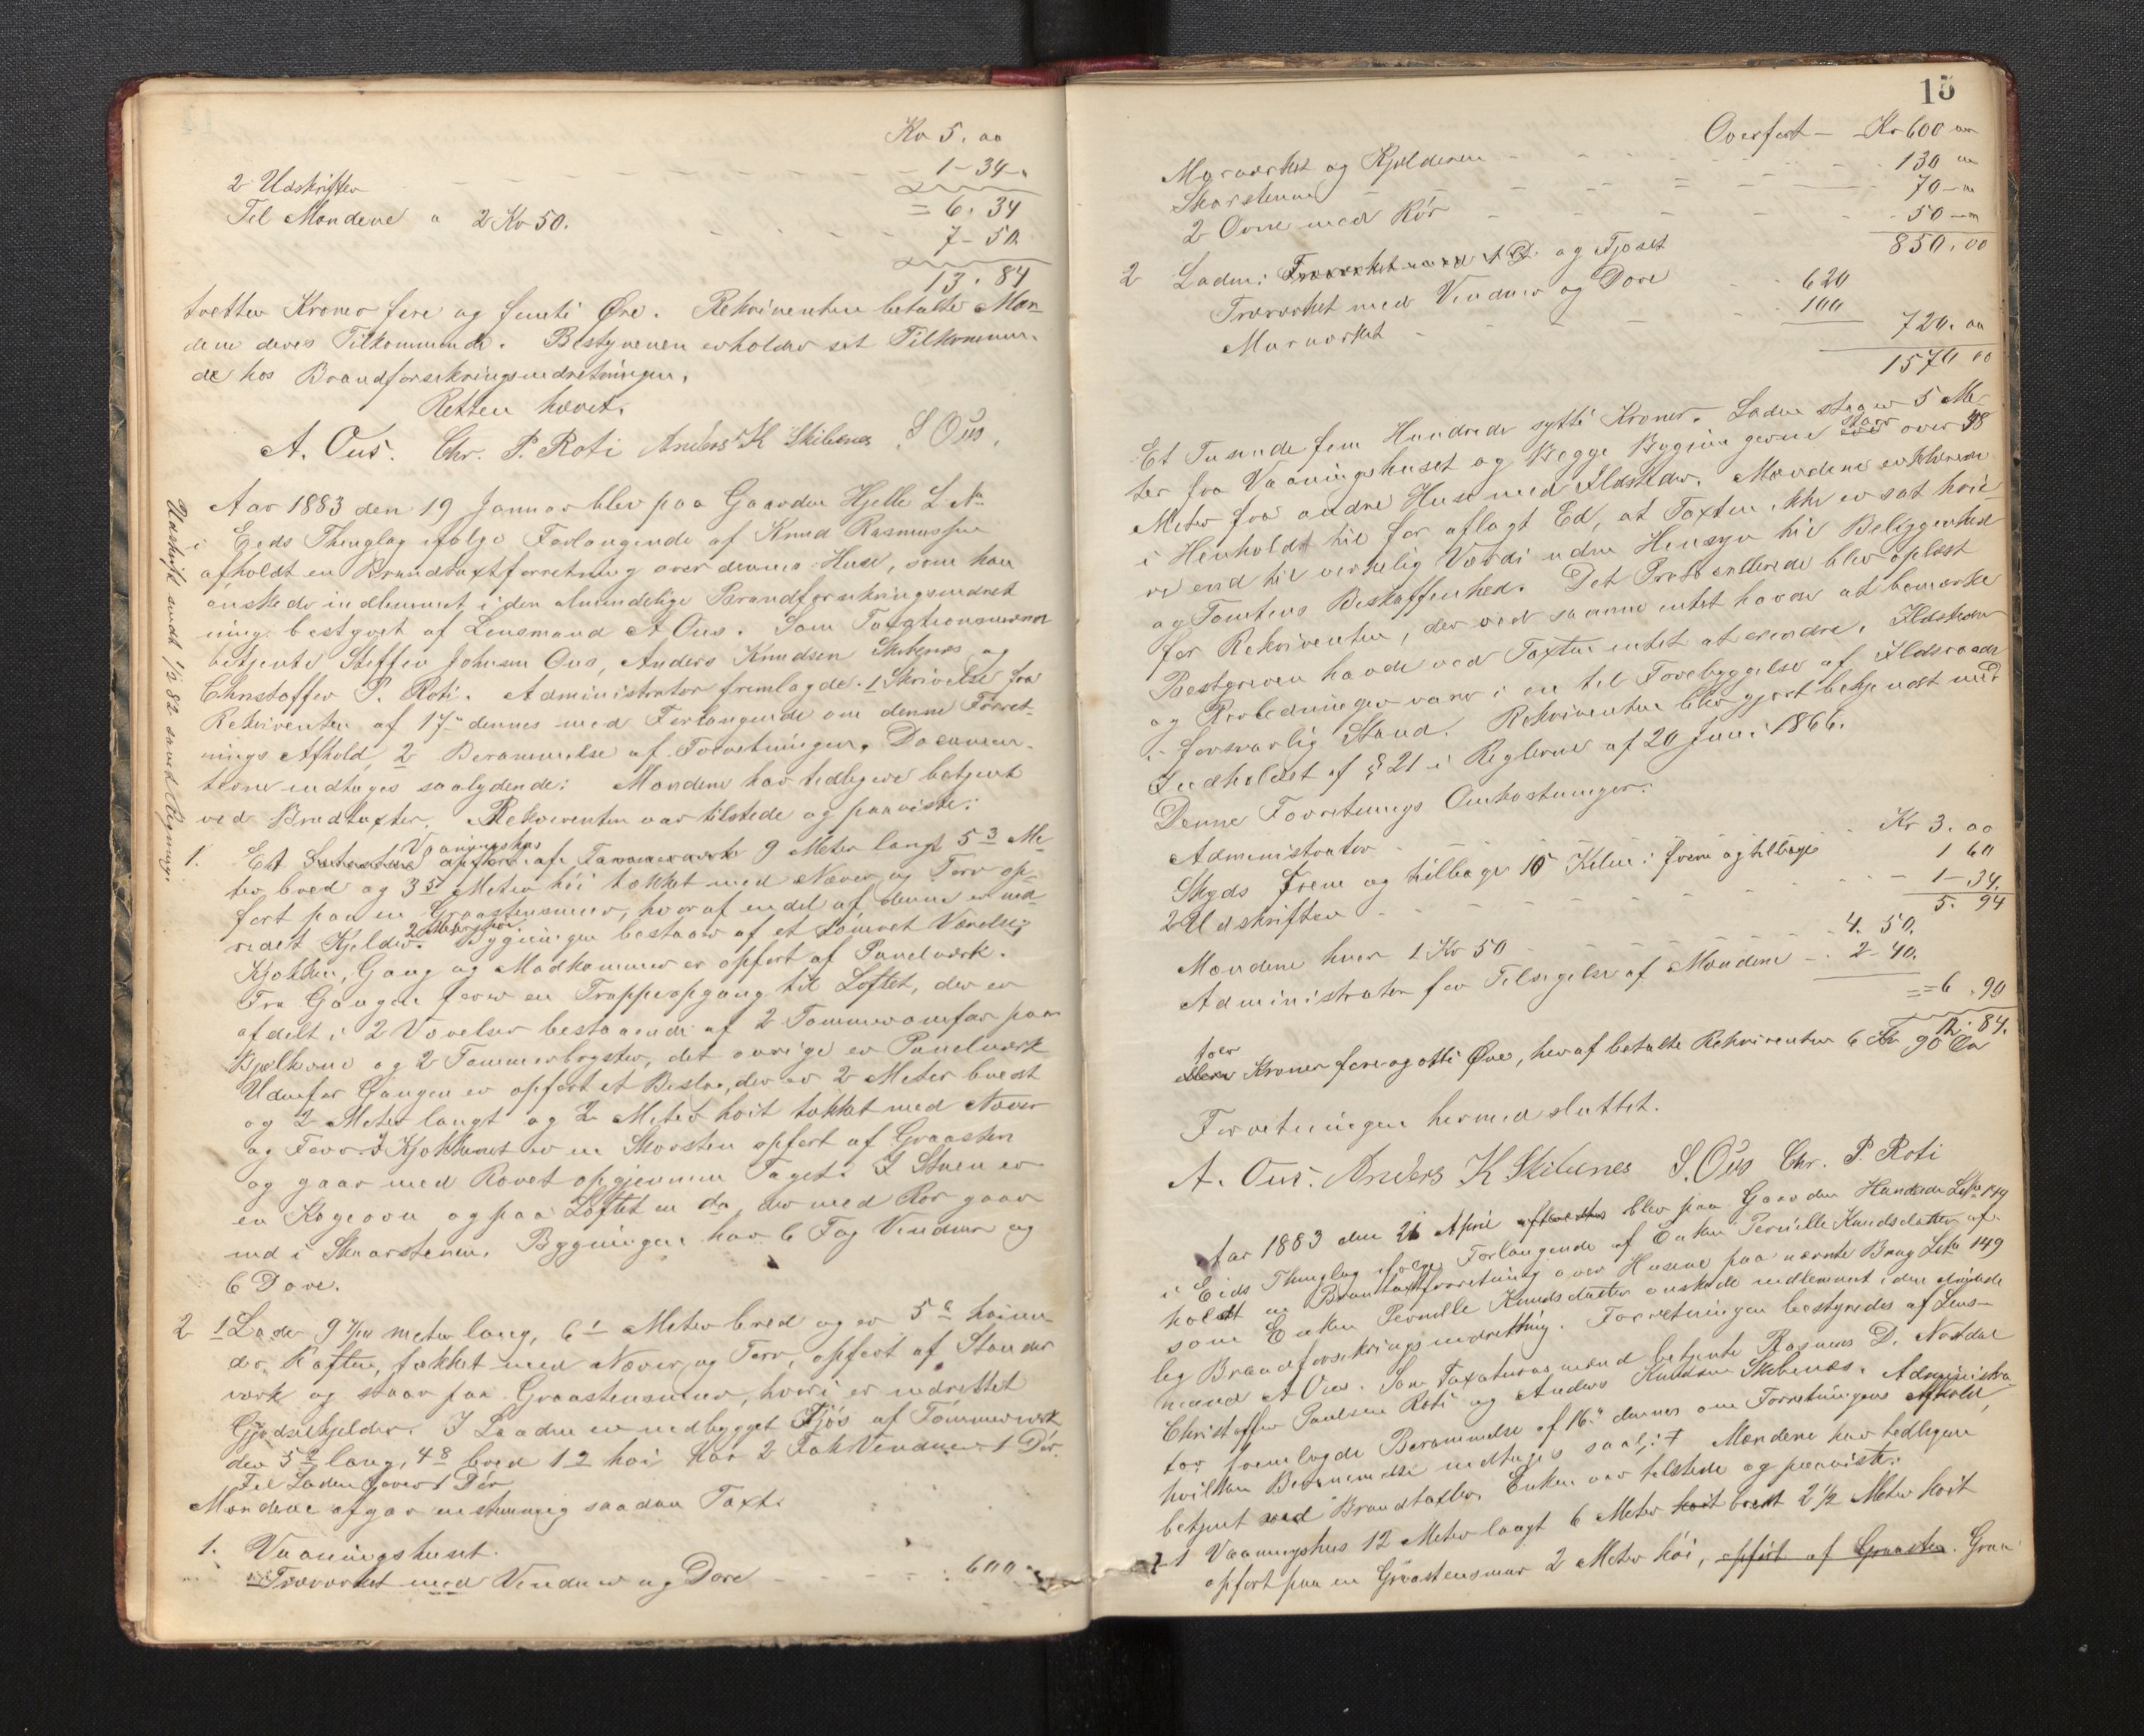 Kr 5. 00
2 Udskrifter - - - - 1 - 34 -
= 6. 34
Til Mændene a 2 Kr 50. - - - - 7 - 50
13. 84
tretten Kroner fire og Øre. Rekvirenten betalte Mæn-
dene deres Tilkommende. Bestyreren erholder sit Tilkommen-
de hos Brandforsikringsindretningen.
Retten hævet.
A. Ous. Chr. P. Roti Anders K Skibenes S Ous.
Udskrift sendt 1/2 82 samt Regning
Aar 1883 den 19 Januar blev paa Gaarden Hjelle L. No
i Eids Thinglag ifølge Forlangende af Knud Rasmussen
afholdt en Brandtaxtforretning over dennes Huse, som han
ønskede indlemmet i den almindelige Brandforsikringsindret
ning bestyret af Lensmand A Ous. Som Taxtionsmænd
betjente Steffen Johnsen Ous, Anders Knudsen Skibenes og
Christoffer P. Roti. Administrator fremlagde 1 Skrivelse fra
Rekvirenten af 17 dennes med Forlangende om denne Forret-
nings Afhold, 2 Berammelse af Forretningen. Documen-
terne indtages saalydende: Mændene har tidligere betjent
ved Brandtaxter. Rekvirenten var tilstede og paaviste:
1. Et Vaaningshus 9 Meter langt 5 3 Me-
ter bred og 3 5 Meter høi tækket med Næver og Torv op-
ført paa en Graastensmur, hvoraf endel af denne er ind-
redet Kjelder. Bygningen bestaar af et tømret Værelse,
Kjøkken, Gang og Madkammer er opført af Panelværk.
Fra Gangen fører en Trappeopgang til Loftet, der er
afdelt i 2 Værelser bestaaende af 2 Tømmeromfar paa
Bjelkerne og 2 Tømmerbryster, det øvrige er Panelværk
Udenfor Gangen er opført et Beslag, der er 2 Meter bredt
og 2 Meter langt og 2 Meter høit tækket med Næver
og Torv. I Kjøkkenet er en Skorsten opført af Graasten
og gaar med Røret op gjennem Taget. I Stuen er
en Kogeovn og paa Loftet en do, der med Rør gaar
ind i Skorstenen. Bygningen har 6 Fag Vinduer og
6 Døre.
2 1 Lade 9 7/10 meter lang, 6 1 Meter bred og er 5 høi un-
der Raften, tækket med Næver og Torv, opført af Stander
værk og staar paa Graastensmur, hvori er indrettet
Gjødselkjelder. I Laden er indbygget Fjøs af Tømmerværk
den 5 2 lang, 4 8 bred 1 9 høi har 2 Fak Vinduer 1 Dør.
Til Laden fører 1 Dør
Mændene afgav enstemmig saadan Taxt:
1. Vaaningshuset.
Træværket med Vinduer og Døre - - - - 600 -
15
Overført - Kr 600 00
Murværket og Kjelderen - - - 130 00
Skorstenen - - - 70 - 00
2 Ovne med Rør - - - 50 - 00
850. 00
2 Laden: og Fjøset
Træværket med Vinduer og Døre - - 620
Murværket - - - 100
720. 00
1570 00
Et Tusinde fem Hundrede sytti Kroner. Laden staar 5 Me-
ter fra Vaaningshuset og Begge Bygningerne staar over 48
Meter fra andre Huse med Ildsteder. Mændene erklærede
i Henhold til før aflagt Ed, at Taxten ikke er sat høie-
re end til virkelig Værdi uden Hensyn til Beliggenhed
og Tomtens Beskaffenhed. Det Protokollerede blev oplæst
for Rekvirenten, der ved samme intet havde at bemærke
Bestyreren havde ved Taxten intet at erindre. Ildsteder
og Rørledninger vare i en til Forebyggelse af Ildsvaade
i forsvarlig Stand. Rekvirenten blev gjort bekjendt med
Indholdet af § 21 i Reglerne af 20 Juni 1866.
Denne Forretnings Omkostninger:
Administrator - - - Kr 3. 00
Skyds frem og tilbage 10 Kilm: frem og tilbage 1 60
2 Udskrifter - - - 1 - 34.
5. 94
Mændene hver 1 Kr 50 - - - 4. 50.
Administrator for Tilsigelse af Mændene - 2 - 40.
= 6. 90
12. 84.
tolv Kroner fire og otti Øre, heraf betalte Rekvirenten 6 Kr 90 Øre
Forretningen hermed sluttet.
A. Ous. Anders K Skibenes S. Ous Chr. P. Roti
Aar 1883 den 21 April blev paa Gaarden L No 149
i Eids Thinglag ifølge Forlangende af Enken Pernille Knudsdatter af-
holdt en Brandtaxtforretning over Husene paa nævnte Brug L No 149
som Enken Pernille Knudsdatter ønskede indlemmet i den almindе
lig Brandforsikringsindretning. Forretningen bestyredes af Lens-
mand A Ous. Som Taxationsmænd betjente Rasmus D. Nosdal
Christoffer Paulsen Roti og Anders Knudsen Skibenes. Administra-
tor fremlagde Berammelse af 16 dennes om Forretningens Afhold,
hvilken Berammelse indtages saal: Mændene har tidligere
betjent ved Brandtaxter. Enken var tilstede og paaviste:
1 Vaaningshus 12 Meter langt 6 Meter bredt 2 1/2 Meter høit
opført paa en Graastensmur 2 Meter høi, opført af Graasten. Graa